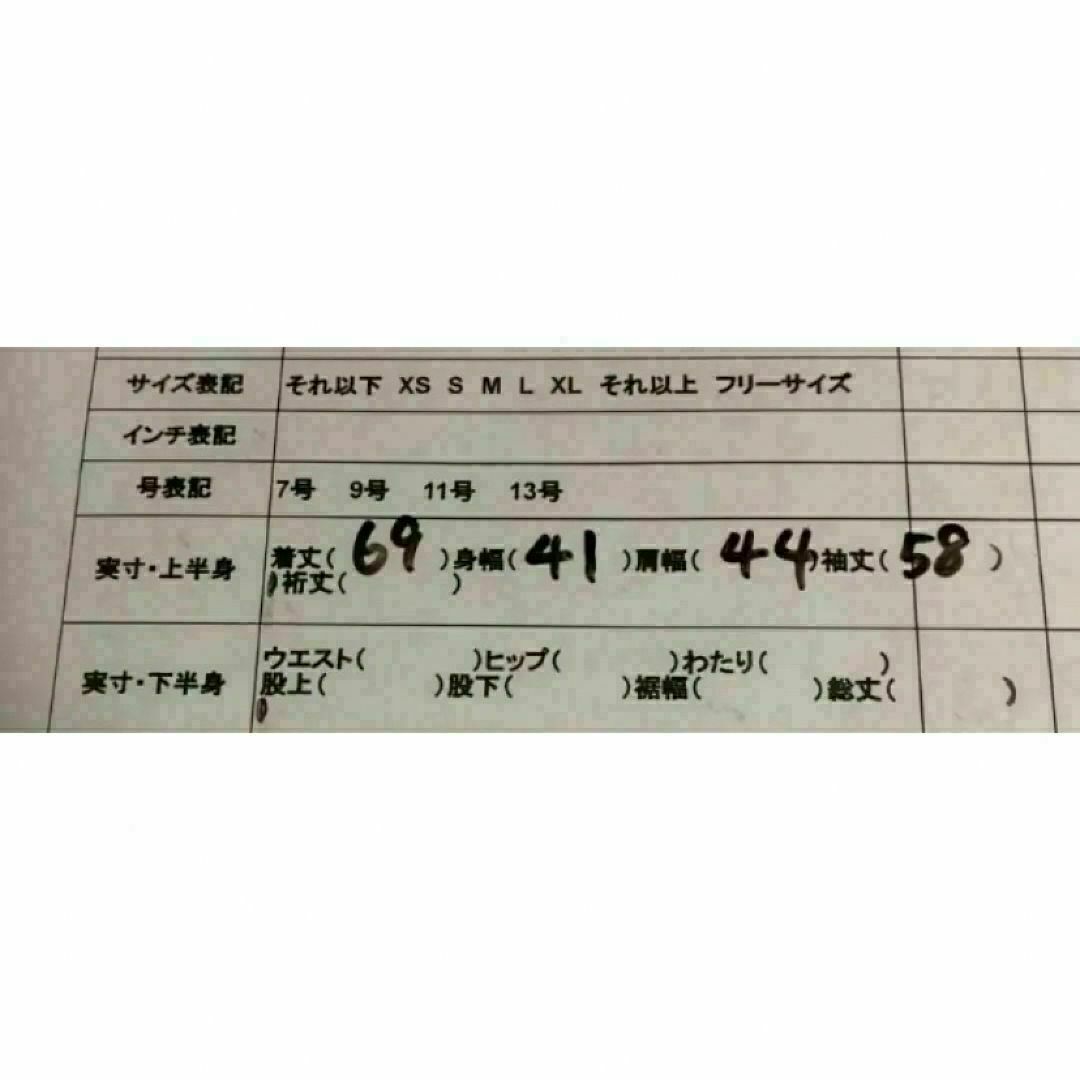 サイズ表記 それ以下 XS S M L XL それ以上 フリーサイズ
インチ表記
号表記 7号 9号 11号 13号
実寸・上半身 着丈( 69 )身幅( 41 )肩幅( 44 )袖丈( 58 )
)裄丈( )
実寸・下半身 ウエスト( )ヒップ( )わたり( )
股上( )股下( )裾幅( )総丈( )
)